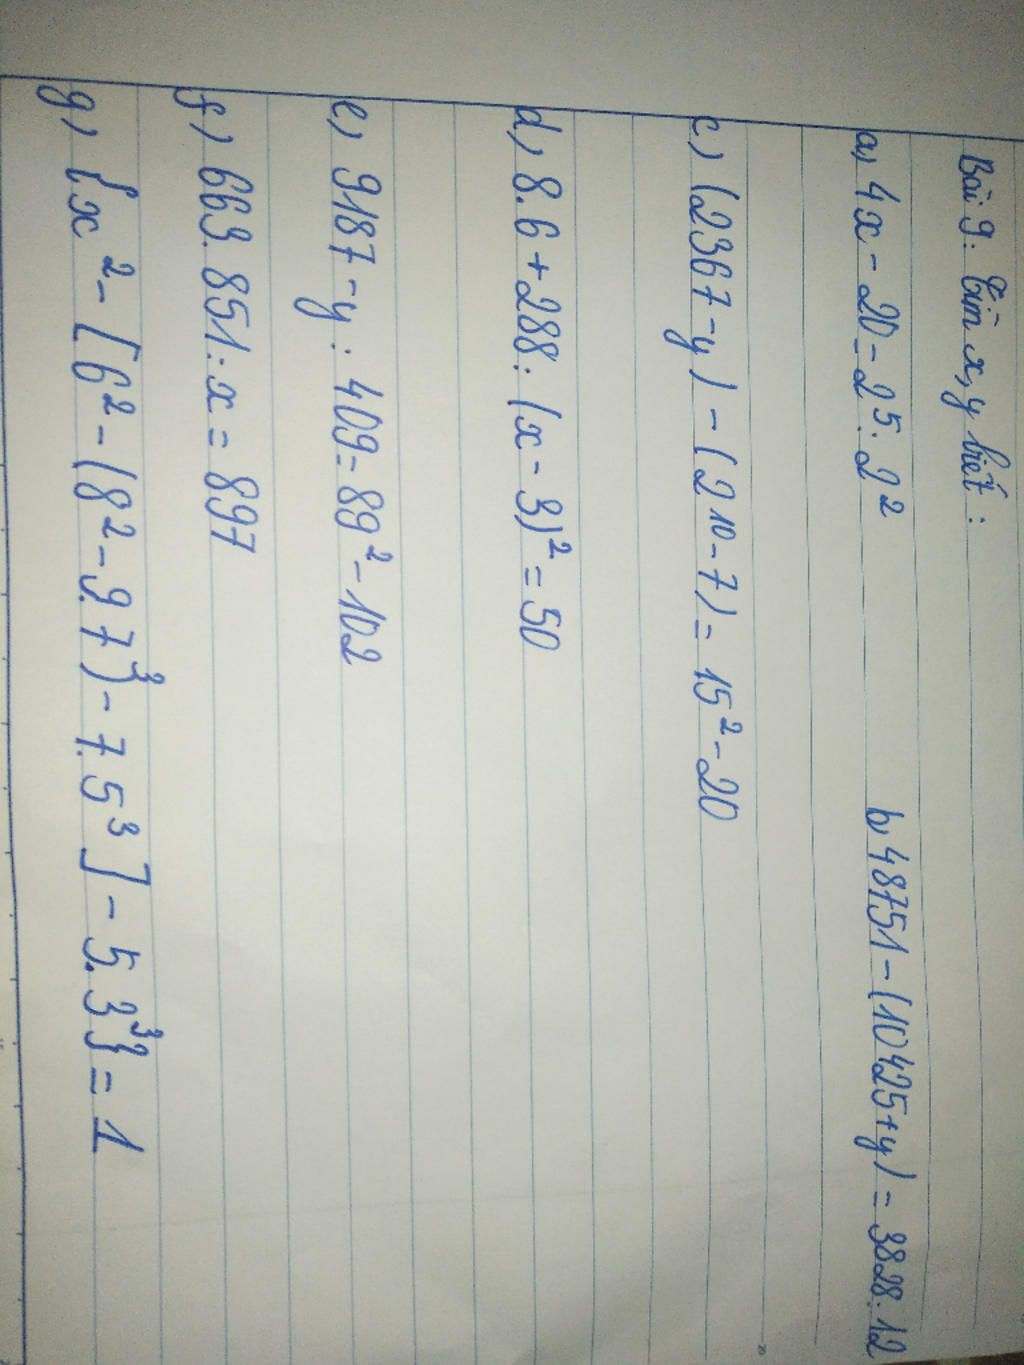 Bài 9: Tìm x, y biết:
a, 4x - 20 = 2⁵ : 2² b, 48751 - (10425 + y) = 3828 : 12
c, (2367 - y) - (2¹⁰ - 7) = 15² - 20
d, 8.6 + 288 : (x - 3)² = 50
e, 9187 - y : 409 = 89² - 102
f, 663.851 : x = 897
g, {x² - [6² - (8² - 9.7)³ - 7.5³] - 5.3³} = 1